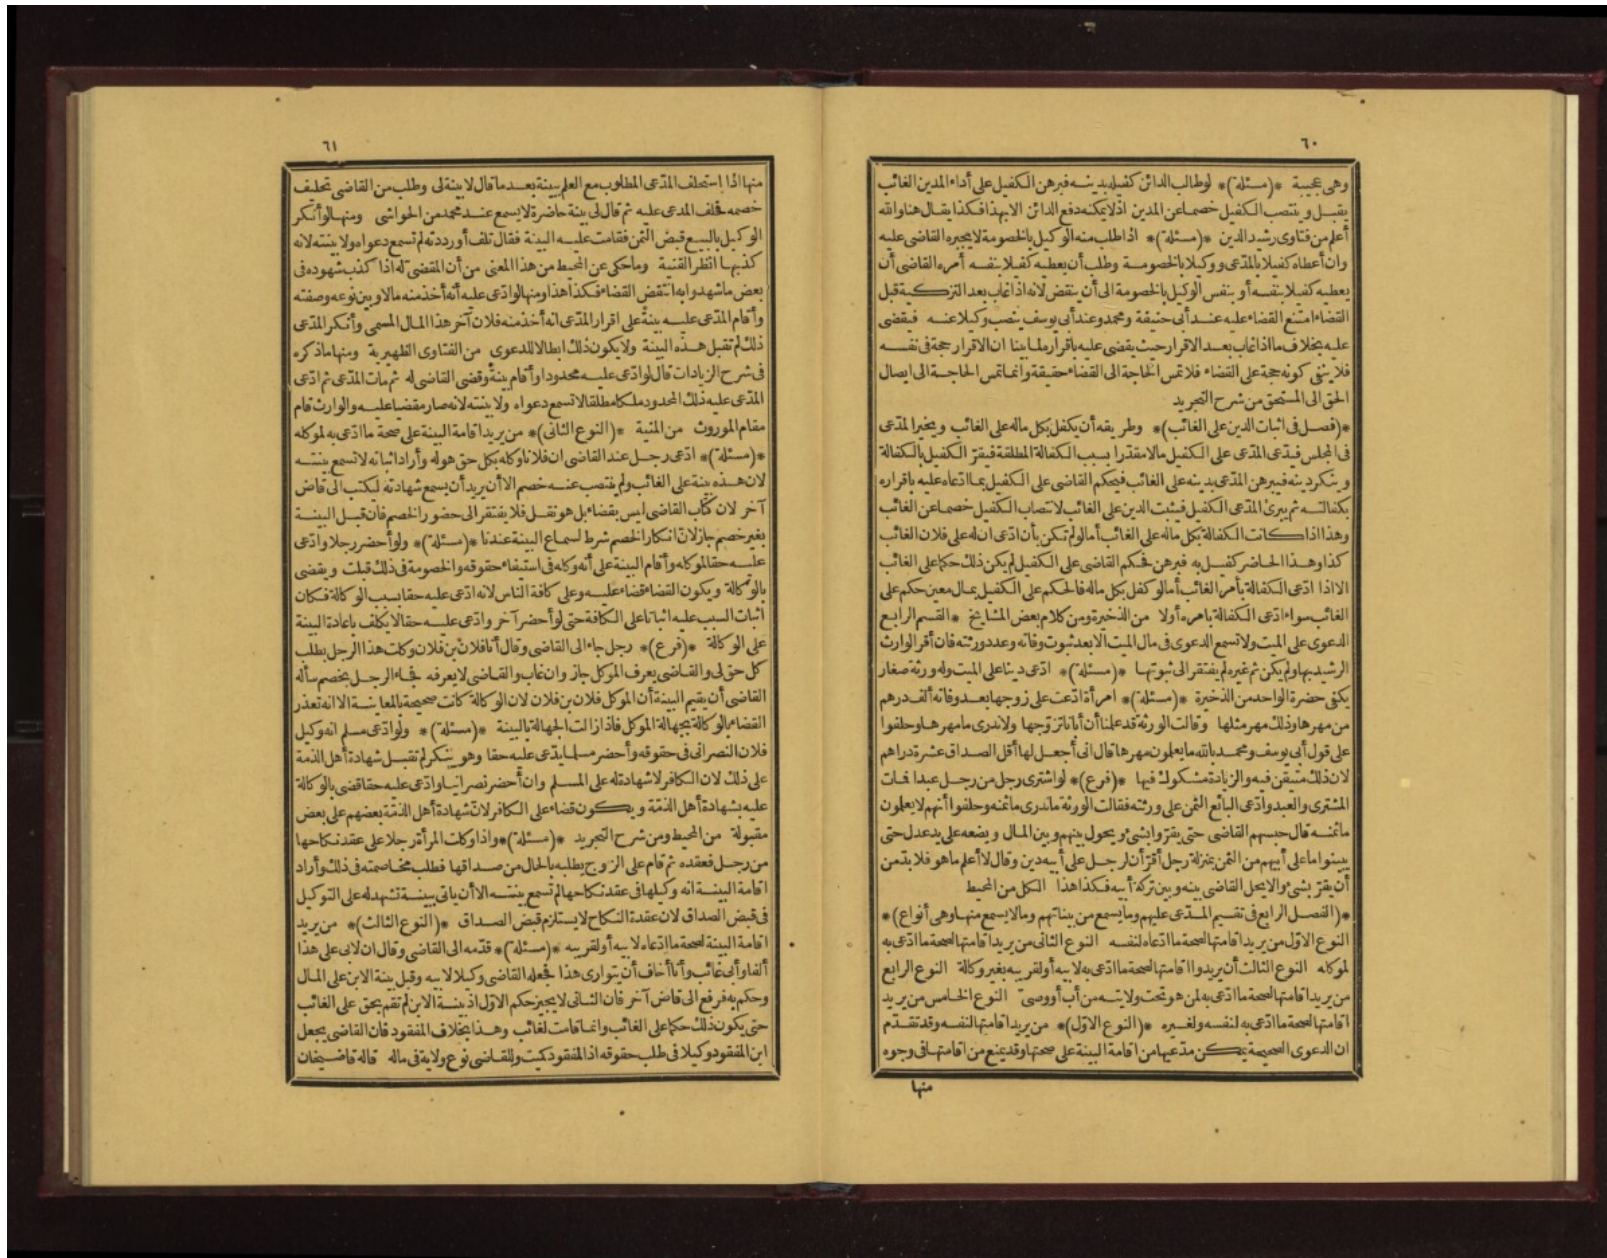 ٦٠
وهى عجيبة *(مسئلة)* لوطالب الدائن كفيله بدينه فبرهن الكفيل على أداء المدين الغائب
يقبل وينتصب الكفيل خصما عن المدين اذ لا يمكنه دفع الدائن الا بهذا فكذا يقال هنا والله
أعلم من فتاوى رشيد الدين *(مسئلة)* اذا طلب منه الوكيل بالخصومة لا يجبره القاضى عليه
وان أعطاه كفيلا بالمدعى ووكيلا بالخصومة وطلب أن يعطيه كفيلا بنفسه أمره القاضى أن
يعطيه كفيلا بنفسه أو بنفس الوكيل بالخصومة الى أن ينقض لانه اذا غاب بعد التزكية قبل
القضاء امتنع القضاء عليه عند أبى حنيفة ومحمد وعند أبى يوسف ينصب وكيلا عنه فيقضى
عليه بخلاف ما اذا غاب بعد الاقرار حيث يقضى عليه باقراره لما بينا ان الاقرار حجة فى نفسه
فلا ينفى كونه حجة على القضاء فلا تمس الحاجة الى القضاء حقيقة وانما تمس الحاجة الى ايصال
الحق الى المستحق من شرح التجريد
*(فصل فى اثبات الدين على الغائب)* وطريقه أن يكفل بكل ماله على الغائب ويخبر المدعى
فى المجلس فيدعى المدعى على الكفيل مالا مقدرا بسبب الكفالة المطلقة فيقر الكفيل بالكفالة
وينكر دينه فيبرهن المدعى بدينه على الغائب فيحكم القاضى على الكفيل بما ادعاه عليه باقراره
بكفالته ثم يبرئ المدعى الكفيل فيثبت الدين على الغائب لانتصاب الكفيل خصما عن الغائب
وهذا اذا كانت الكفالة بكل ماله على الغائب أما لو لم تكن بأن ادعى ان له على فلان الغائب
كذا وهذا الحاضر كفيل به فبرهن فحكم القاضى على الكفيل لم يكن ذلك حكما على الغائب
الا اذا ادعى الكفالة بأمر الغائب أما لو كفل بكل ماله فالحكم على الكفيل بمال معين حكم على
الغائب سواء ادعى الكفالة بامره أولا من الذخيرة ومن كلام بعض المشايخ *القسم الرابع
الدعوى على الميت ولا تسمع الدعوى فى مال الميت الا بعد ثبوت وفاته وعدد ورثته فان أقر الوارث
الرشيد بها ولم يكن ثم غيره لم يفتقر الى ثبوتها *(مسئلة)* ادعى دينا على الميت وله ورثة صغار
يكفى حضرة الواحد من الذخيرة *(مسئلة)* امرأة ادعت على زوجها بعد وفاته ألف درهم
من مهرها وذلك مهر مثلها وقالت الورثة قد علمنا أن أبانا تزوجها ولا ندرى ما مهرها وحلفوا
على قول أبى يوسف ومحمد بالله ما يعلمون مهرها قال انى أجعل لها أقل الصداق عشرة دراهم
لان ذلك متيقن فيه والزيادة مشكوك فيها *(فرع)* لو اشترى رجل من رجل عبدا فمات
المشترى والعبد وادعى البائع الثمن على ورثته فقالت الورثة ما ندرى ما ثمنه وحلفوا أنهم لا يعلمون
ما ثمنه قال حبسهم القاضى حتى يقروا بشئ ويحول بينهم وبين المال ويضعه على يد عدل حتى
يبينوا ما على أبيهم من الثمن بمنزلة رجل أقر أن لرجل على أبيه دين وقال لا أعلم ما هو فلا بد من
أن يقر بشئ والا يحل القاضى بينه وبين تركة أبيه فكذا هذا الكل من المحيط
*(الفصل الرابع فى تقسيم المدعى عليهم وما يسمع من بيناتهم وما لا يسمع منها وهى أنواع)*
النوع الاول من يريد اقامتها لصحة ما ادعاه لنفسه النوع الثانى من يريد اقامتها لصحة ما ادعى به
لموكله النوع الثالث أن يريدوا اقامتها لصحة ما ادعى به لابيه أو لقريبه بغير وكالة النوع الرابع
من يريد اقامتها لصحة ما ادعى به لمن هو تحت ولايته من أب أو وصى النوع الخامس من يريد
اقامتها لصحة ما ادعى به لنفسه ولغيره *(النوع الاول)* من يريد اقامتها لنفسه وقد تقدم
ان الدعوى الصحيحة يمكن مدعيها من اقامة البينة على صحتها وقد يمنع من اقامتها فى وجوه
منها
٦١
منها اذا استحلف المدعى المطلوب مع العلم ببينة بعد ما قال لا بينة لى وطلب من القاضى تحليف
خصمه فحلف المدعى عليه ثم قال لى بينة حاضرة لا يسمع عند محمد من الحواشى ومنها لو أنكر
الوكيل بالبيع قبض الثمن فقامت عليه البينة فقال تلف أو رددته لم تسمع دعواه ولا بينته لانه
كذبها انظر القنية وما حكى عن المحيط من هذا المعنى من أن المقضى له اذا كذب شهوده فى
بعض ما شهدوا به انتقض القضاء فكذا هذا ومنها لو ادعى عليه أنه أخذ منه مالا وبين نوعه وصفته
وأقام المدعى عليه بينة على اقرار المدعى انه أخذ منه فلان آخر هذا المال المسمى وأنكر المدعى
ذلك لم تقبل هذه البينة ولا يكون ذلك ابطالا للدعوى من الفتاوى الظهيرية ومنها ما ذكره
فى شرح الزيادات قال لو ادعى عليه محدودا وأقام بينة وقضى القاضى له ثم مات المدعى ثم ادعى
المدعى عليه ذلك المحدود ملكا مطلقا لا تسمع دعواه ولا بينته لانه صار مقضيا عليه والوارث قام
مقام الموروث من المنية *(النوع الثانى)* من يريد اقامة البينة على صحة ما ادعى به لموكله
*(مسئلة)* ادعى رجل عند القاضى ان فلانا وكله بكل حق هو له وأراد اثباته لا تسمع بينته
لان هذه بينة على الغائب ولم ينتصب عنه خصم الا أن يريد أن يسمع شهادته ليكتب الى قاض
آخر لان كتاب القاضى ليس بقضاء بل هو نقل فلا يفتقر الى حضور الخصم فان قبل البينة
بغير خصم جاز لان انكار الخصم شرط لسماع البينة عندنا *(مسئلة)* ولو أحضر رجلا وادعى
عليه حقا لموكله وأقام البينة على أنه وكله فى استيفاء حقوقه والخصومة فى ذلك قبلت ويقضى
بالوكالة ويكون القضاء قضاء عليه وعلى كافة الناس لانه ادعى عليه حقا بسبب الوكالة فكان
اثبات السبب عليه اثباتا على الكافة حتى لو أحضر آخر وادعى عليه حقا لا يكلف باعادة البينة
على الوكالة *(فرع)* رجل جاء الى القاضى وقال أنا فلان بن فلان وكلت هذا الرجل بطلب
كل حق لى والقاضى يعرف الموكل جاز وان غاب والقاضى لا يعرفه فجاء الرجل بخصم سأله
القاضى أن يقيم البينة أن الموكل فلان بن فلان لان الوكالة كانت صحيحة بالمعاينة الا انه تعذر
القضاء بالوكالة بجهالة الموكل فاذا زالت الجهالة بالبينة *(مسئلة)* ولو ادعى مسلم انه وكيل
فلان النصرانى فى حقوقه وأحضر مسلما يدعى عليه حقا وهو ينكر لم تقبل شهادة أهل الذمة
على ذلك لان الكافر لا شهادة له على المسلم وان أحضر نصرانيا وادعى عليه حقا قضى بالوكالة
عليه بشهادة أهل الذمة ويكون قضاء على الكافر لان شهادة أهل الذمة بعضهم على بعض
مقبولة من المحيط ومن شرح التجريد *(مسئلة)* واذا وكلت المرأة رجلا على عقد نكاحها
من رجل فعقده ثم قام على الزوج يطلبه بالحال من صداقها فطلب مخاصمته فى ذلك وأراد
اقامة البينة انه وكيلها فى عقد نكاحها لم تسمع بينته الا أن يأتى ببينة تشهد له على التوكيل
فى قبض الصداق لان عقدة النكاح لا يستلزم قبض الصداق *(النوع الثالث)* من يريد
اقامة البينة لصحة ما ادعاه لابيه أو لقريبه *(مسئلة)* قدمه الى القاضى وقال ان لابى على هذا
ألفا وأبى غائب وأنا أخاف أن يتوارى هذا فجعله القاضى وكيلا لابيه وقبل بينة الابن على المال
وحكم به فرفع الى قاض آخر فان الثانى لا يجيز حكم الاول اذ بينة الابن لم تقم بحق على الغائب
حتى يكون ذلك حكما على الغائب وانما قامت لغائب وهذا بخلاف المفقود فان القاضى يجعل
ابن المفقود وكيلا فى طلب حقوقه اذ المفقود كميت وللقاضى نوع ولاية فى ماله قاله قاضيخان